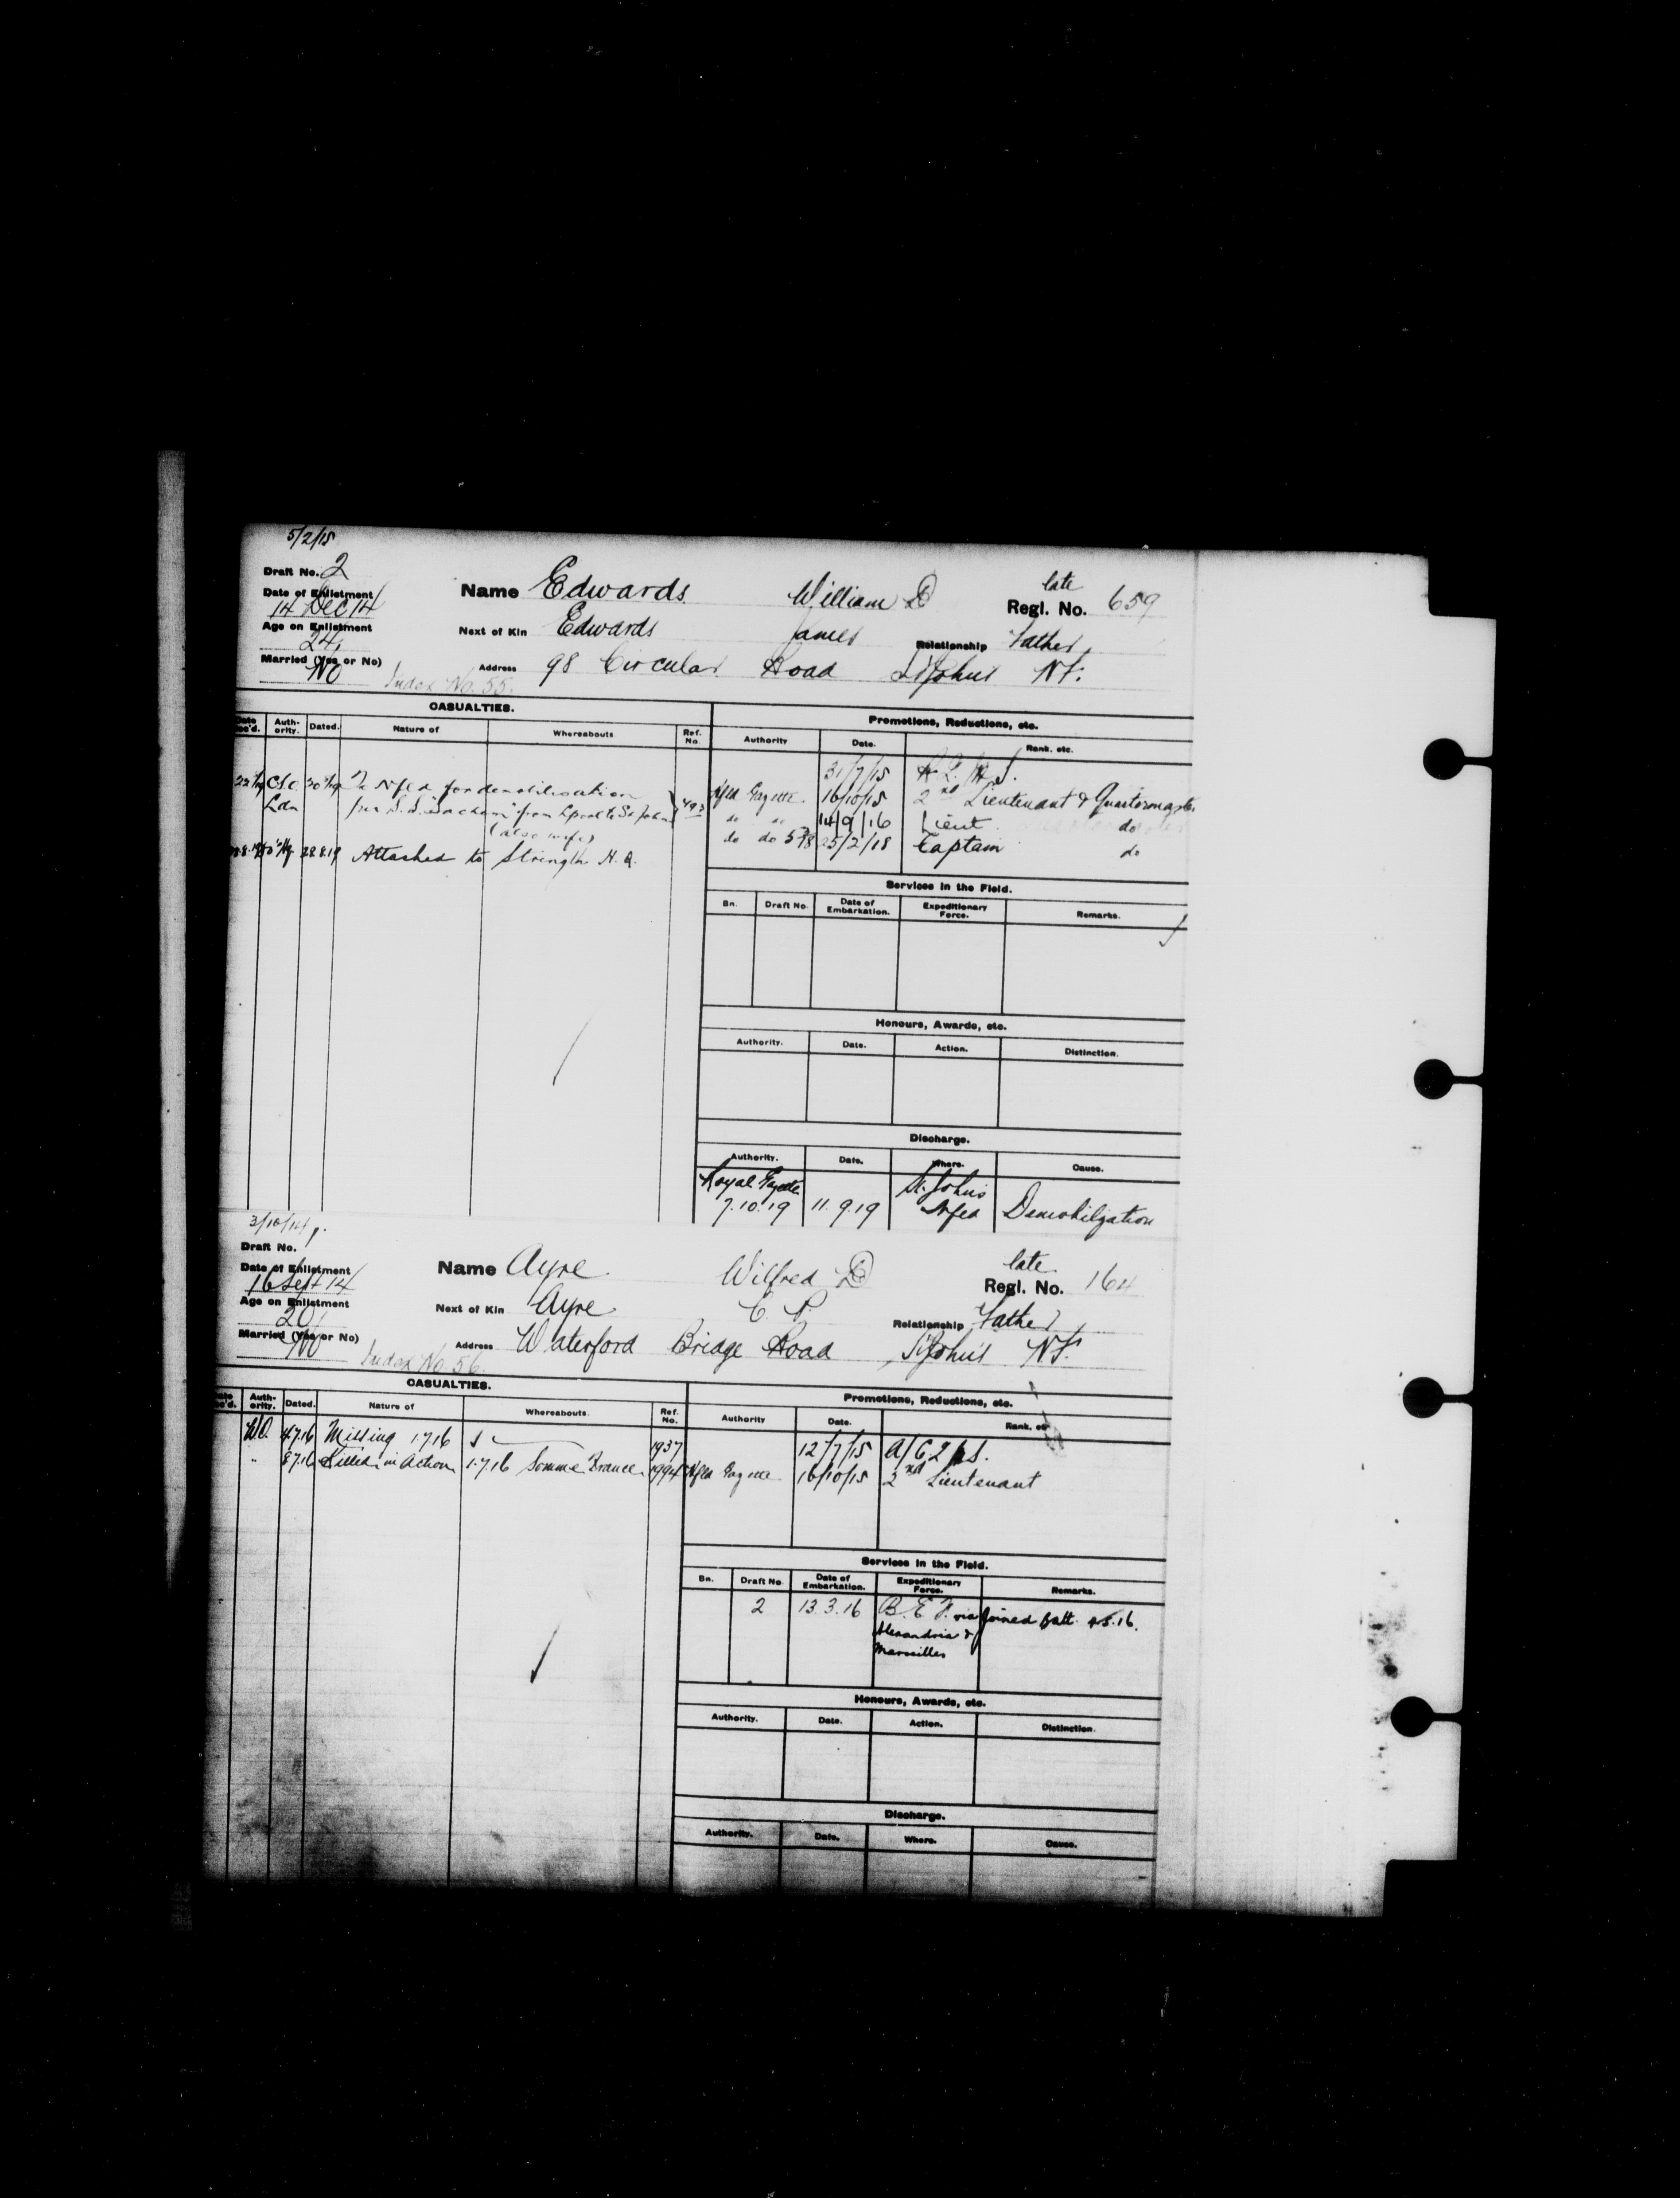 5/2/15
Draft No. 2
Date of Enlistment
14 Dec 14
Age on Enlistment
24
Married (Yes or No)
No
Name Edwards William D
late
Regl. No. 659
Next of Kin Edwards James Relationship Father
Address 98 Circular Road St John's NF.
Index No. 55.
CASUALTIES.
Date Rec'd. Auth-ority. Dated. Nature of Whereabouts Ref. No.
To Nfld for demobilisation
Ldn per S.S. "Sachem" from Lpool to St Johns
(also wife)
28.8.19 Attached to Strength H.Q.
Promotions, Reductions, etc.
Authority Date. Rank. etc.
31/7/15
Nfld Gazette. 16/10/15 2nd Lieutenant & Quartermaster
do do 14/9/16 Lieut. do
do do 25/2/18 Captain do
Services in the Field.
Bn. Draft No. Date of Embarkation. Expeditionary Force. Remarks.
Honours, Awards, etc.
Authority. Date. Action. Distinction.
Discharge.
Authority. Date. Where. Cause.
Royal Gazette St. John's
7.10.19 11.9.19 Nfld Demobilization
3/10/14
Draft No. 1.
Date of Enlistment
16 Sept 14
Age on Enlistment
20
Married (Yes or No)
No
Name Ayre Wilfred D
late
Regl. No. 164
Next of Kin Ayre C. P. Relationship Father
Address Waterford Bridge Road St John's NF.
Index No 56.
CASUALTIES.
Date Rec'd. Auth-ority. Dated. Nature of Whereabouts. Ref. No.
W.O. 4.7.16 Missing 1.7.16 1937
" 8.7.16 Killed in Action 1.7.16 Somme France 1994
Promotions, Reductions, etc.
Authority Date. Rank. etc
12/7/15 A/C2MS.
Nfld Gazette 16/10/15 2nd Lieutenant
Services in the Field.
Bn. Draft No. Date of Embarkation. Expeditionary Force. Remarks.
2 13.3.16 B.E.F. via Joined Batt.
Alexandria &
Marseilles
Honours, Awards, etc.
Authority. Date. Action. Distinction.
Discharge.
Authority. Date. Where. Cause.